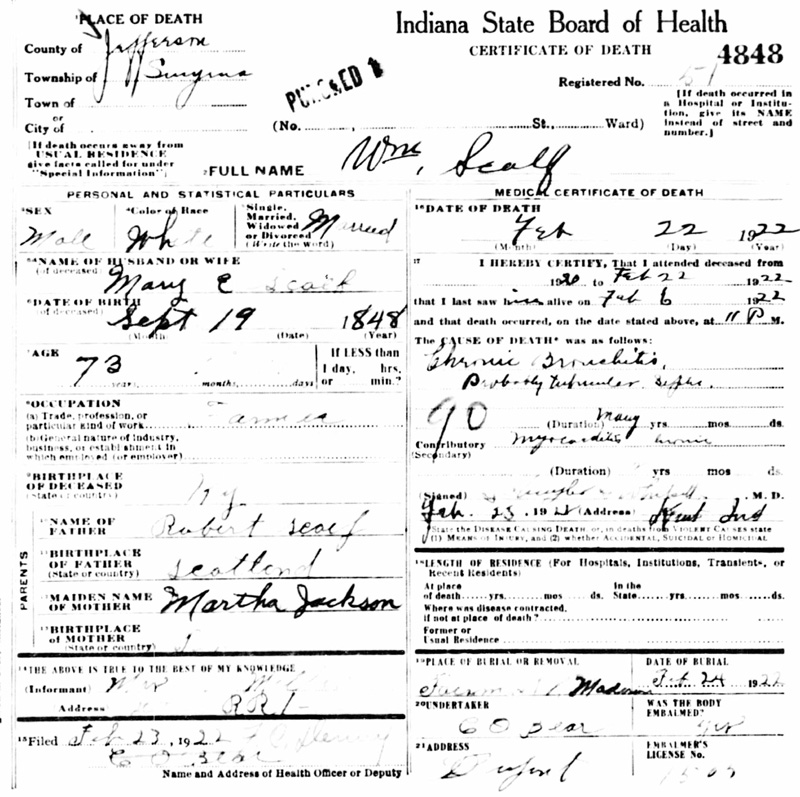 PLACE OF DEATH
Indiana State Board of Health
CERTIFICATE OF DEATH
4848
County of Jefferson
Township of Smyrna
Town of
or
City of
Registered No. 51
[If death occurred in
a Hospital or Institu-
tion, give its NAME
instead of street and
number.]
(No. St., Ward)
[If death occurs away from
USUAL RESIDENCE
give facts called for under
"Special Information"]
FULL NAME Wm. Scalf
PERSONAL AND STATISTICAL PARTICULARS
SEX
Male
Color or Race
White
Single,
Married,
Widowed
or Divorced
(Write the word)
Married
NAME OF HUSBAND OR WIFE
(of deceased)
Mary E Scalf
DATE OF BIRTH
(of deceased)
Sept 19 1848
(Month) (Date) (Year)
AGE
73
years, months, days
If LESS than
1 day, hrs.
or min.?
OCCUPATION
(a) Trade, profession, or
particular kind of work Farmer
(b) General nature of industry,
business, or establishment in
which employed (or employer)
BIRTHPLACE
OF DECEASED
(State or country)
Ky
PARENTS
NAME OF
FATHER
Robert Scalf
BIRTHPLACE
OF FATHER
(State or country)
Scotland
MAIDEN NAME
OF MOTHER
Martha Jackson
BIRTHPLACE
OF MOTHER
(State or country)
THE ABOVE IS TRUE TO THE BEST OF MY KNOWLEDGE
(Informant)
Address RR 1
Filed Feb 23, 1922
Name and Address of Health Officer or Deputy
MEDICAL CERTIFICATE OF DEATH
16 DATE OF DEATH
Feb 22 1922
(Month) (Day) (Year)
17 I HEREBY CERTIFY, That I attended deceased from
1920 to Feb 22 1922
that I last saw him alive on Feb 6 1922
and that death occurred, on the date stated above, at 11 P M.
The CAUSE OF DEATH* was as follows:
Chronic Bronchitis,
Probably
90
(Duration) Many yrs mos ds.
Contributory Myocarditis
(Secondary)
(Duration) yrs mos ds.
(Signed) M. D.
Feb. 23, 1922 (Address) Kent Ind
*State the DISEASE CAUSING DEATH, or, in deaths from VIOLENT CAUSES state
(1) MEANS OF INJURY, and (2) whether ACCIDENTAL, SUICIDAL or HOMICIDAL
18 LENGTH OF RESIDENCE (For Hospitals, Institutions, Transients, or
Recent Residents)
At place
of death yrs. mos ds.
In the
State yrs mos ds.
Where was disease contracted,
if not at place of death?
Former or
Usual Residence
19 PLACE OF BURIAL OR REMOVAL
DATE OF BURIAL
Feb 24 1922
20 UNDERTAKER
WAS THE BODY
EMBALMED?
21 ADDRESS
EMBALMER'S
LICENSE No.